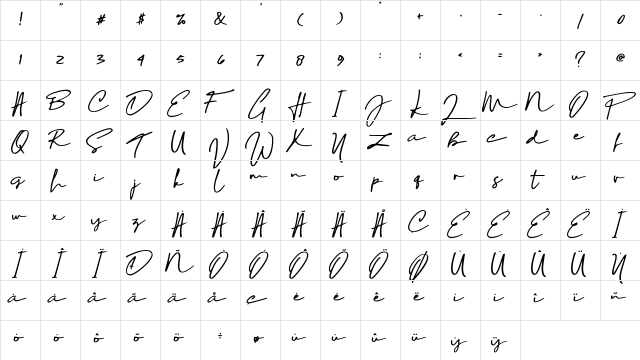 ! " # $ % & ' ( ) * + , - . / 0
1 2 3 4 5 6 7 8 9 : ; < = > ? @
A B C D E F G H I J K L M N O P
Q R S T U V W X Y Z a b c d e f
g h i j k l m n o p q r s t u v
w x y z À Á Â Ã Ä Å Ç È É Ê Ë Ì
Í Î Ï Ð Ñ Ò Ó Ô Õ Ö Ø Ù Ú Û Ü Ý
à á â ã ä å ç è é ê ë ì í î ï ñ
ò ó ô õ ö ÷ ø ù ú û ü ý ÿ